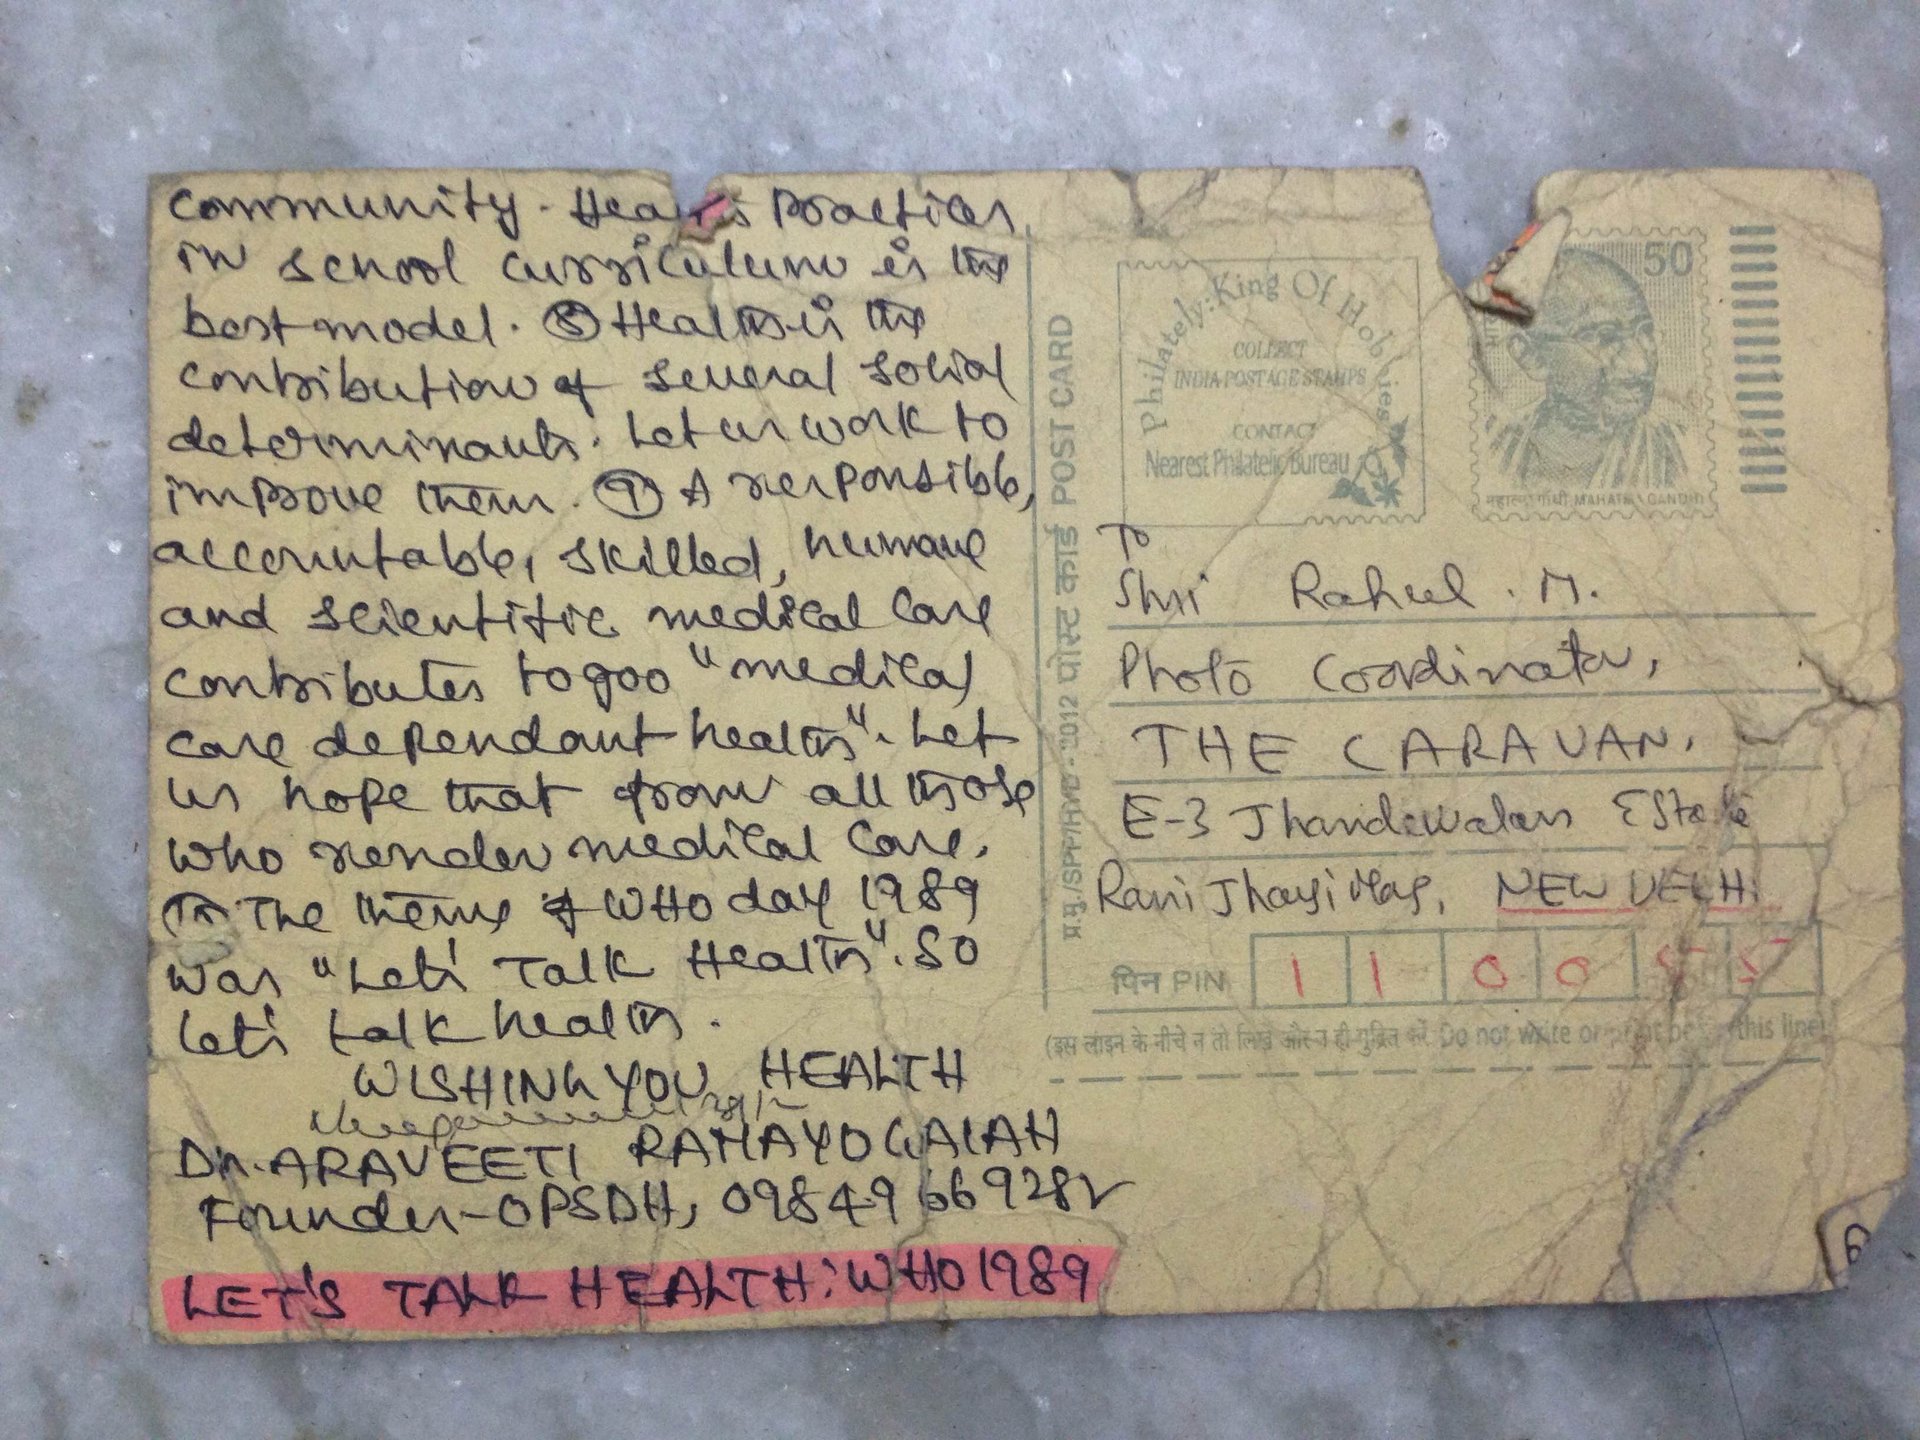 Community. Health Practices
in school curriculum is the
best model. ⑧ Health is the
contribution of several social
determinants. Let us work to
improve them. ⑨ A responsible,
accountable, skilled, humane
and scientific medical care
contributes to goo "medical
care dependant health". Let
us hope that from all those
who render medical care.
The theme of WHO day 1989
was "Let's Talk Health". So
let's talk health.
WISHING YOU HEALTH
Dr. ARAVEETI RAMAYOGAIAH
Founder-OPSDH, 09849669282
LET'S TALK HEALTH: WHO 1989
प्र.मु./SPP/HYD.-2012 पोस्ट कार्ड POST CARD
Philately: King Of Hobbies
COLLECT
INDIA POSTAGE STAMPS
CONTACT
Nearest Philatelic Bureau
50
महात्मा गांधी MAHATMA GANDHI
To
Shri Rahul . M.
Photo Coordinator,
THE CARAVAN,
E-3 Jhandewalan Estate
Rani Jhansi Marg, NEW DELHI
पिन PIN 110055
(इस लाइन के नीचे न तो लिखें और न ही मुद्रित करें Do not write or print below this line)